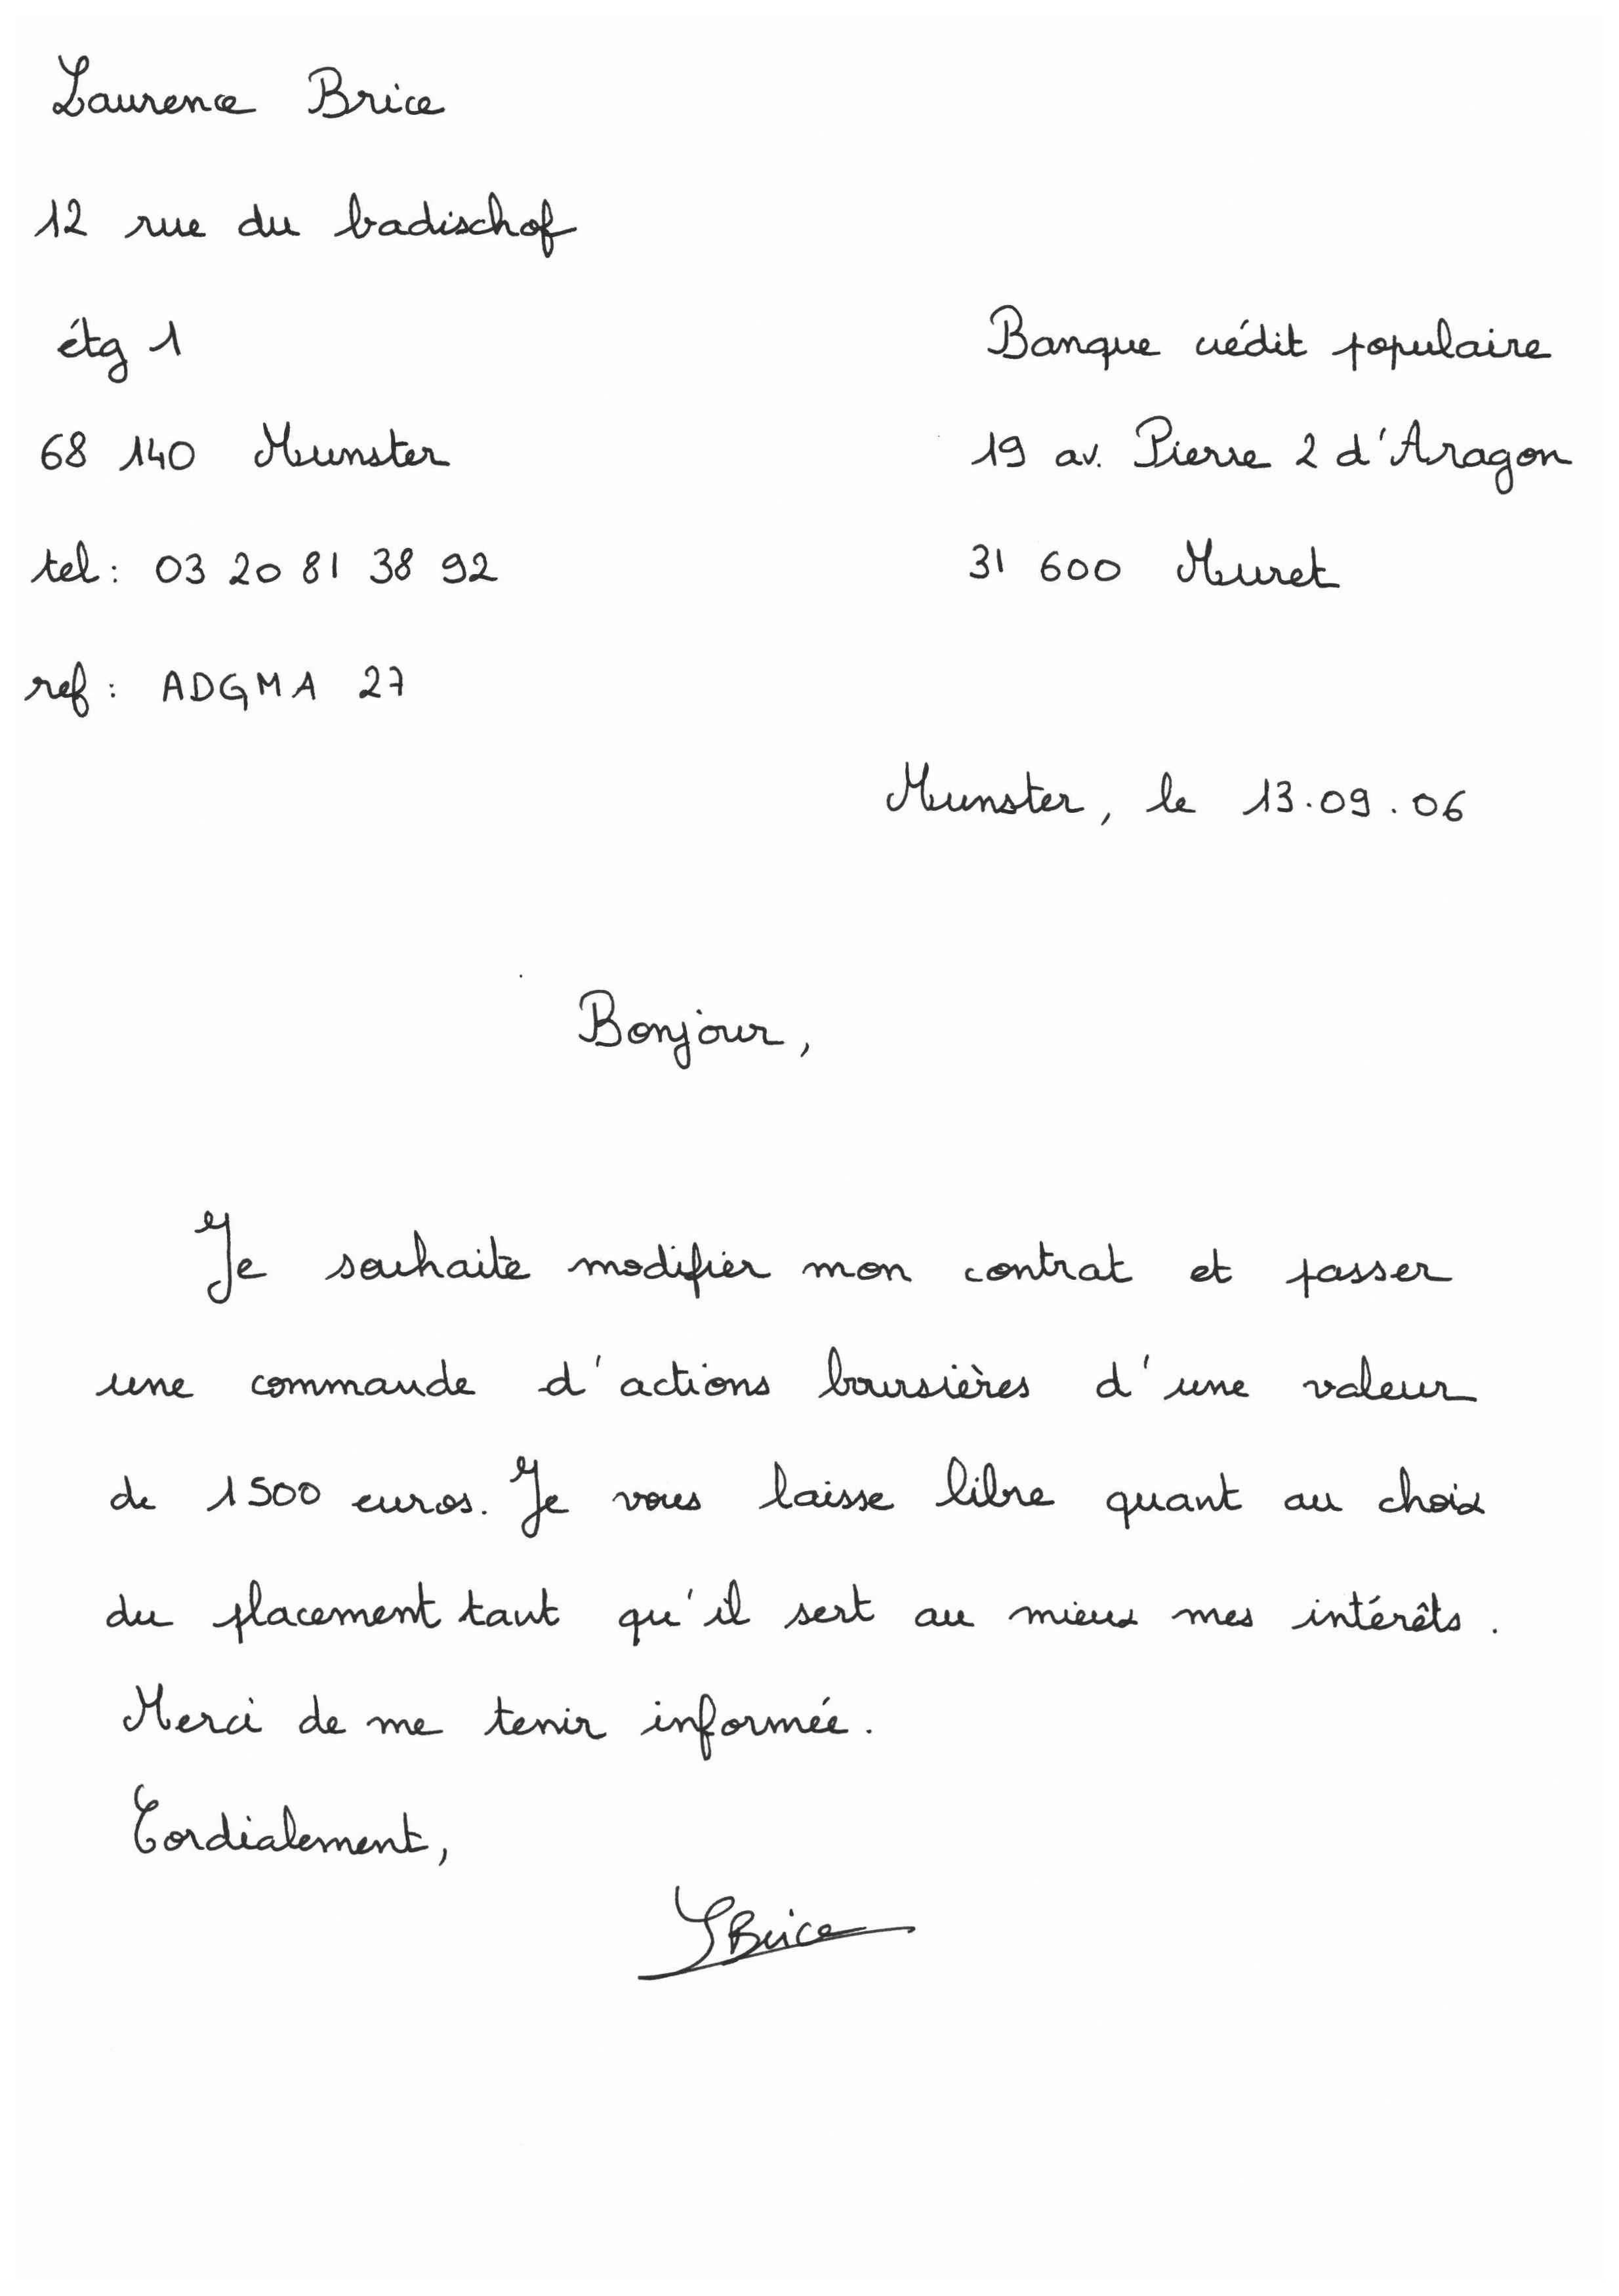 Laurence Brice
12 rue du badischof
étg 1
68 140 Munster
tel : 03 20 81 38 92
ref : ADGMA 27
Banque crédit populaire
19 av. Pierre 2 d'Aragon
31 600 Muret
Munster, le 13.09.06
Bonjour,
Je souhaite modifier mon contrat et passer
une commande d'actions boursières d'une valeur
de 1500 euros. Je vous laisse libre quant au choix
du placement tant qu'il sert au mieux mes intérêts.
Merci de me tenir informée.
Cordialement,
LBrice